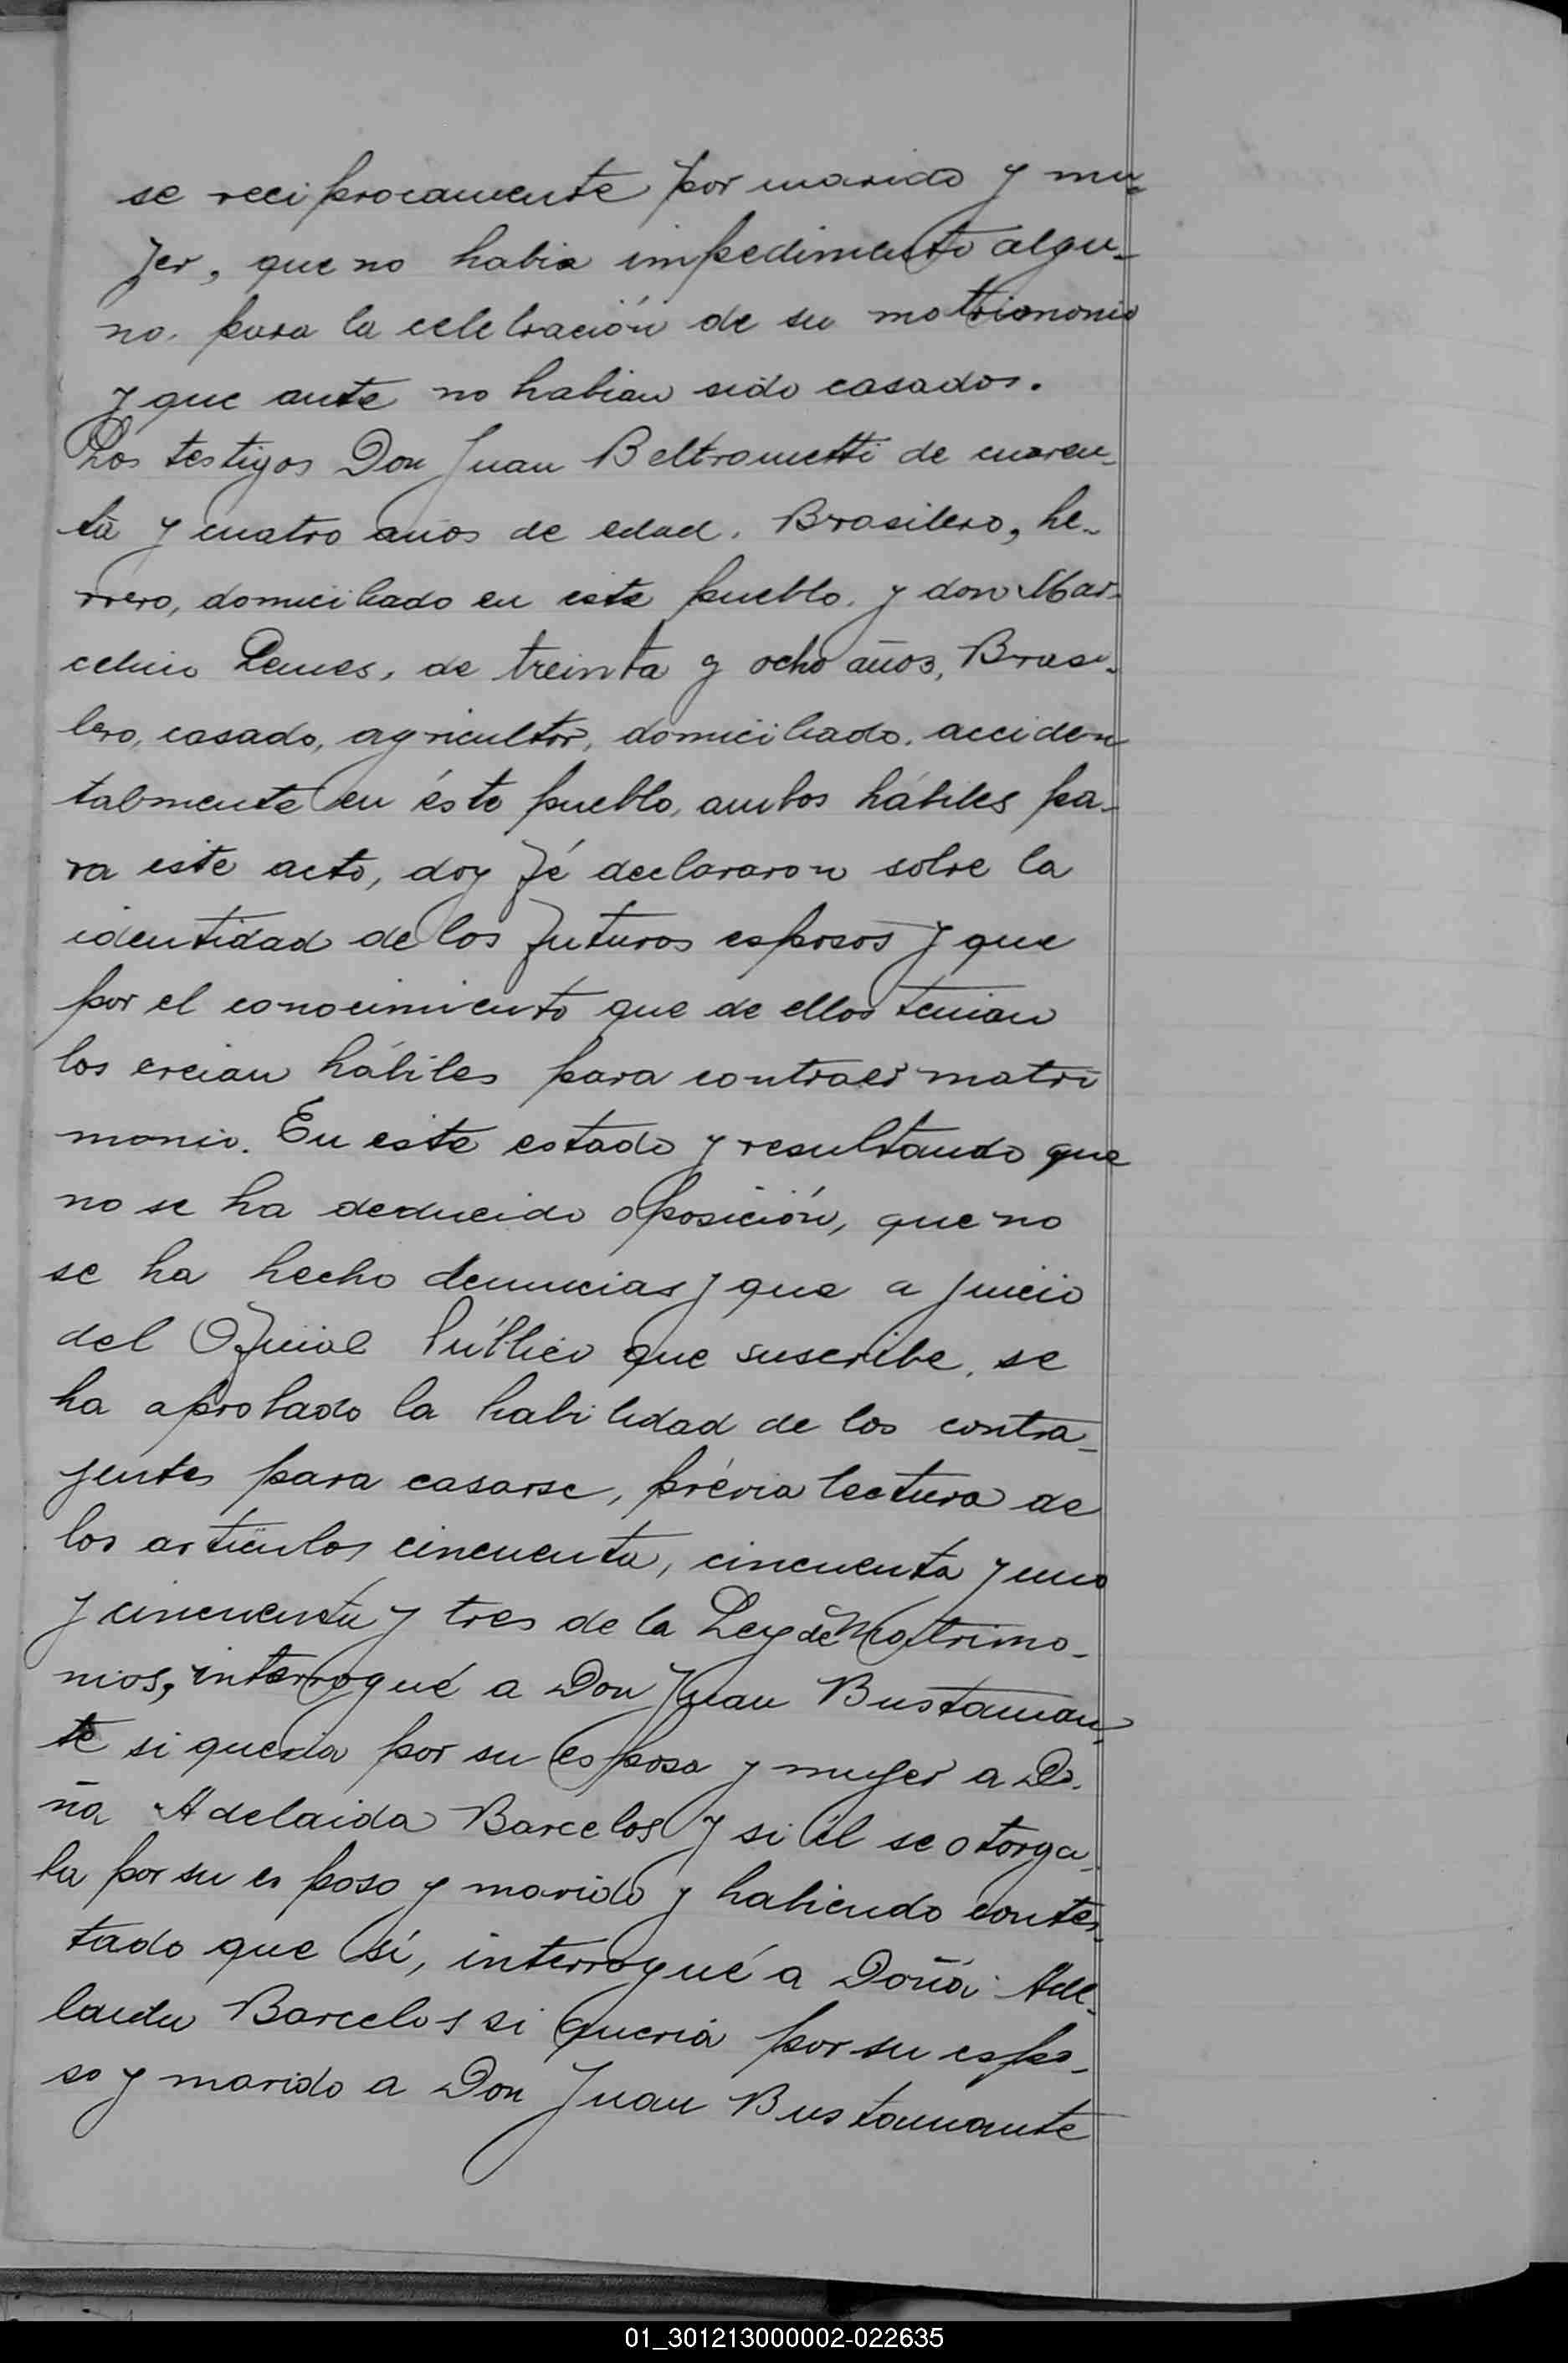 se reciprocamente por marido y mu-
jer, que no habia impedimento algu-
no para la celebración de su matriomonio
y que ante no habian sido casados.
Los testigos Don Juan Beltrametti de cuaren-
ta y cuatro años de edad, Brasilero, he-
rrero, domiciliado en este pueblo, y don Mar-
celino Lemes, de treinta y ocho años, Brasi-
lero, casado, agricultor, domiciliado, acciden
talmente en éste pueblo, ambos hábiles pa-
ra este acto, doy fé declararon sobre la
identidad de los futuros esposos y que
por el conocimiento que de ellos tenian
los creian hábiles para contraer matri
monio. En este estado y resultando que
no se ha deducido oposición, que no
se ha hecho denuncias y que a juicio
del Oficial Público que suscribe, se
ha aprobado la habilidad de los contra-
yentes para casarse, prévia lectura de
los artículos cincuenta, cincuenta y uno
y cincuenta y tres de la Ley de Matrimo-
nios, interrogué a Don Juan Bustaman-
te si queria por su esposa y mujer a Do-
ña Adelaida Barcelos y si él se otorga-
ba por su esposo y marido y habiendo contes-
tado que sí, interrogué a Doña Ade-
laida Barcelos si queria por su espo-
so y marido a Don Juan Bustamante
01_301213000002-022635